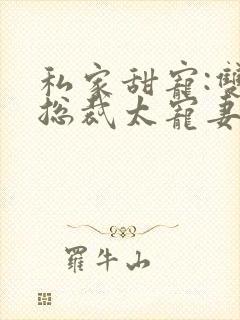 私家甜寵:雙
総裁太寵妻
羅牛山